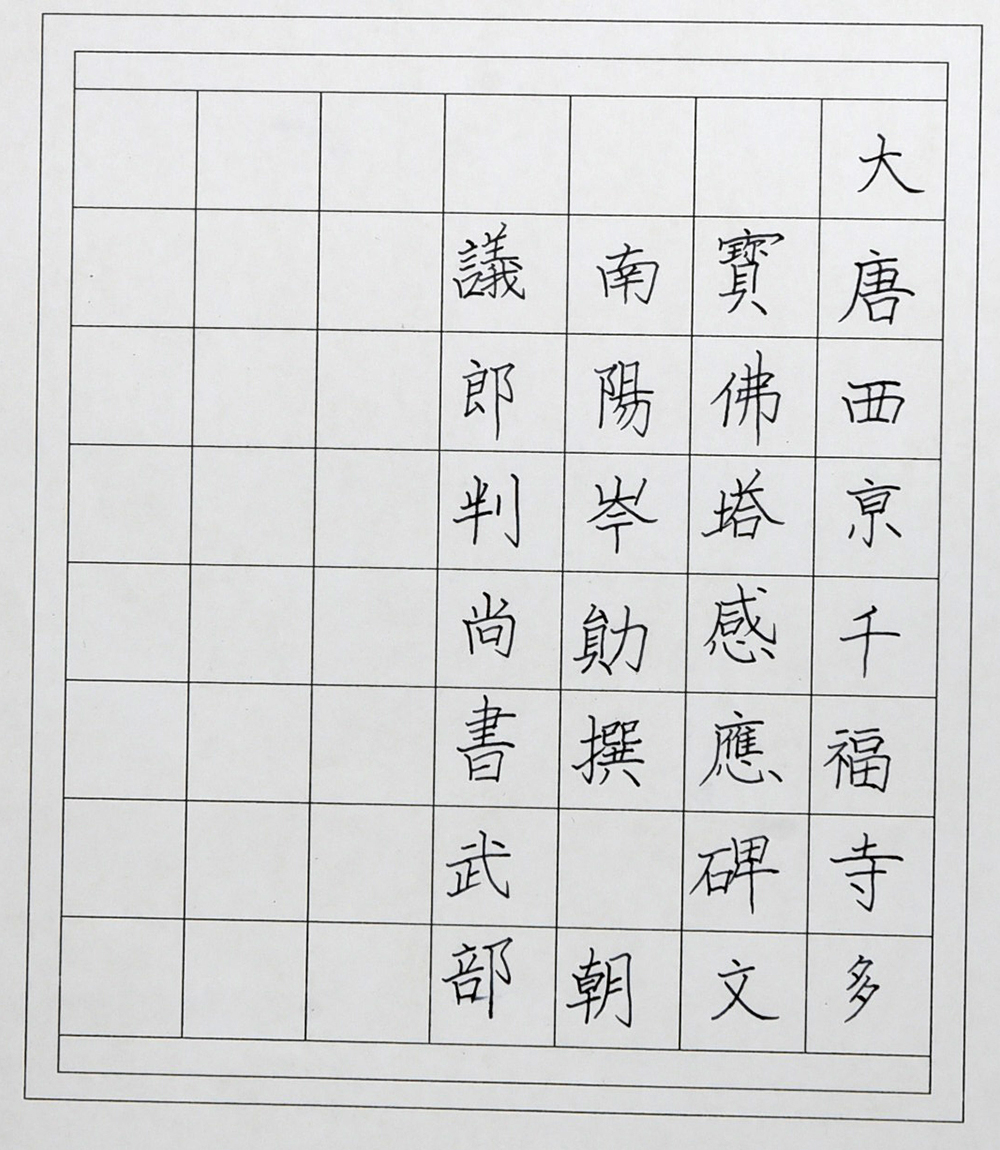 大唐西京千福寺多
寶佛塔感應碑文
南陽岑勛撰 朝
議郎判尚書武部